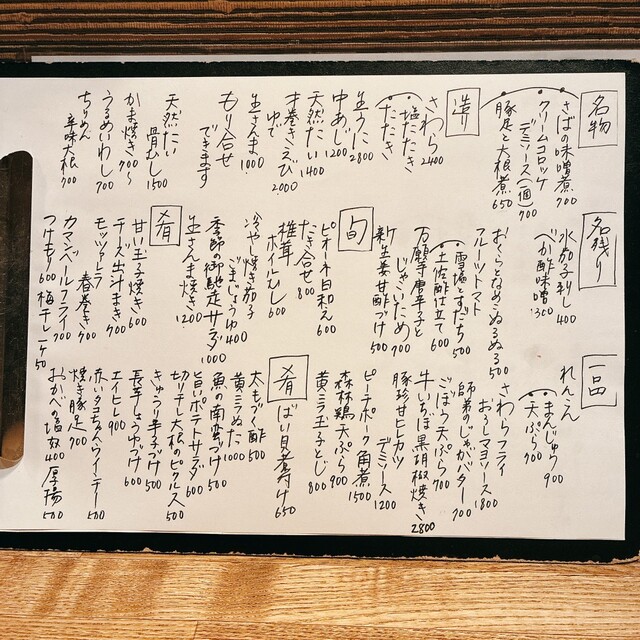 名物
さばの味噌煮 700
クリームコロッケ
デミソース(1個) 700
豚足と大根煮 650
造り
さわら 2400
塩たたき
たたき
生うに 2800
中あじ 1200
天然たい 1400
才巻きえび
ゆで 2000
生さんま 1000
もり合せ
できます
天然たい
骨むし 1500
かま焼き 900〜
うるめいわし 700
ちりめん
辛味大根 700
名残り
水茄子刺し 400
べか酢味噌 300
おくらとなめこぬるぬる 500
フルーツトマト
雪塩とすだち 500
土佐酢仕立て 600
万願寺唐辛子と
じゃこいため 700
新生姜甘酢づけ 500
旬
ピオーネ白和え 600
たき合せ 800
椎茸
ホイルむし 600
冷やし焼き茄子
ごまじょうゆ 400
季節の御馳走サラダ 1000
生さんま焼き 1200
肴
甘い玉子焼き 600
チーズ出汁まき 700
モッツァレラ
春巻き 700
カマンベールフライ 700
つけもり 600 梅干し一ケ 50
一品
れんこん
まんじゅう 900
天ぷら 700
さわらフライ
おろしマヨソース 1800
師弟のじゃがバター 700
ごぼう天ぷら 700
牛いちぼ黒胡椒焼き 2800
豚珍甘ヒレカツ
デミソース 1200
ピーチポーク角煮 1500
森林鶏天ぷら 900
黄ニラ玉子とじ 800
肴
ばい貝煮つけ 650
太もづく酢 500
黄ニラぬた 1000
魚の南蛮づけ 500
旨いポテトサラダ 600
切り干し大根のピクルス 500
きゅうり辛子づけ 500
長芋しょうゆづけ 600
エイヒレ 900
赤いタコちゃんウインナー 500
焼き豚足 700
おかべの塩奴 400 厚揚 500